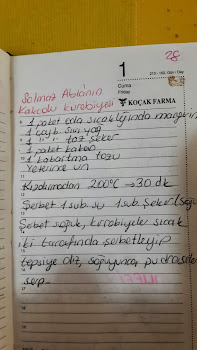 28
1
213 - 152. Gün / Day
Cuma
Friday
KOÇAK FARMA
Salmaz Ablanın
Kakaolu kurabiyeli
1 paket oda sıcaklığında margarin
1 çayb. sıvı yağ
1 " " toz şeker
1 paket kakao
1 kabartma tozu
Yeterince un
Kızdırmadan 200°C → 30 dk
Şerbet 1 sub. su 1 sub. Şeker (soğu
Şebet soğuk, kurabiyeler sıcak
iki tarafında şebetleyip
tepsiye diz, soğuyunca pudra şeker
serp.